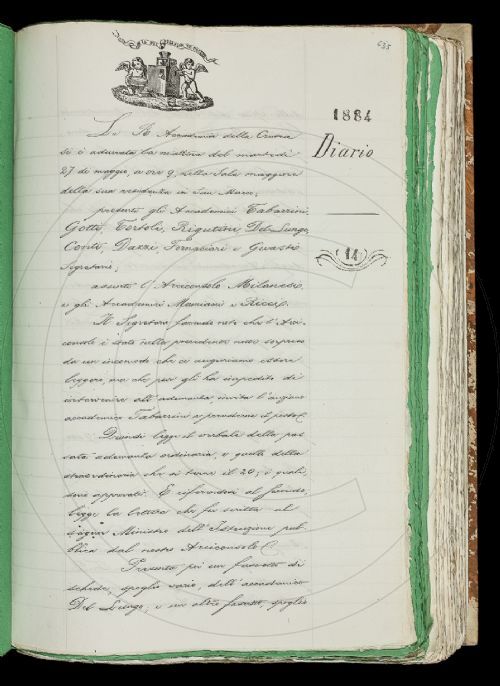 635
1884
Diario
14
La R. Accademia della Crusca
si è adunata la mattina del martedì
27 di maggio, a ore 9, nella Sala maggiore
della sua residenza in San Marco;
presenti gli Accademici Tabarrini,
Gotti, Tortoli, Rigutini, Del Lungo,
Conti, Dazzi, Fornaciari e Guasti
Segretario;
assente l'Arciconsolo Milanesi,
e gli Accademici Mamiani e Ricci.
Il Segretario facendo noto che l'Arci-
consolo è stato nella precedente notte sorpreso
da un incomodo che ci auguriamo essere
leggero, ma che pur gli ha impedito di
intervenire all'adunanza, invita l'anziano
accademico Tabarrini a prenderne il posto.
Quindi legge il verbale della pas-
sata adunanza ordinaria, e quello della
straordinaria che si tenne il 20; i quali
sono approvati. E riferendosi al secondo,
legge la lettera che fu scritta al
signor Ministro dell'Istruzione pub-
blica dal nostro Arciconsolo.
Presenta poi un fascetto di
schede, spoglio vario dell'accademico
Del Lungo, e un altro fascetto, spoglio